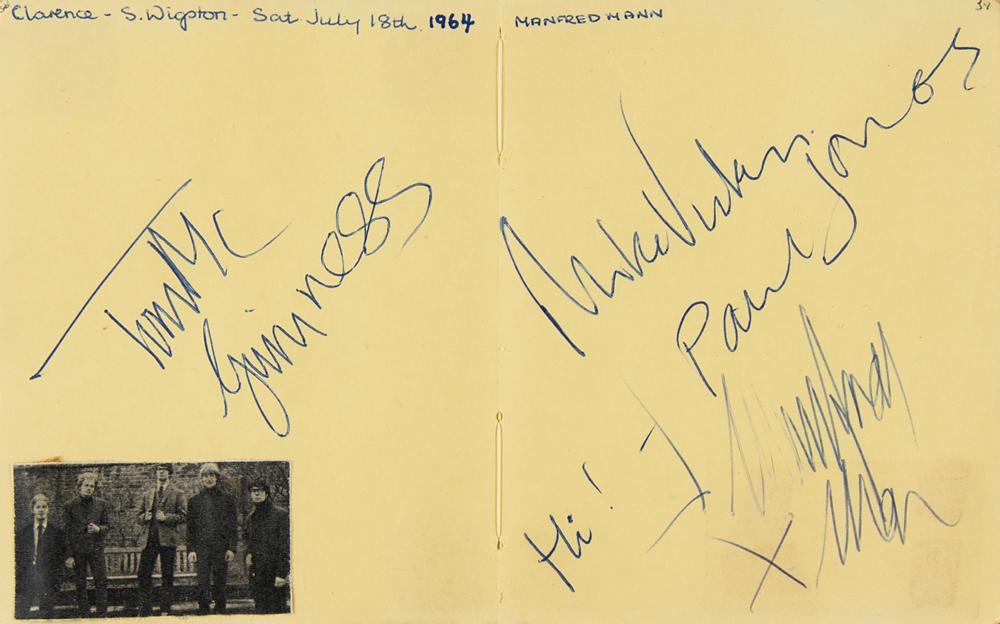 Clarence - S. Wigston - Sat. July 18th. 1964
MANFRED MANN
Tom Mc
Guinness
Mike Vickers
Paul Jones
Hi!
Manfred
X Man